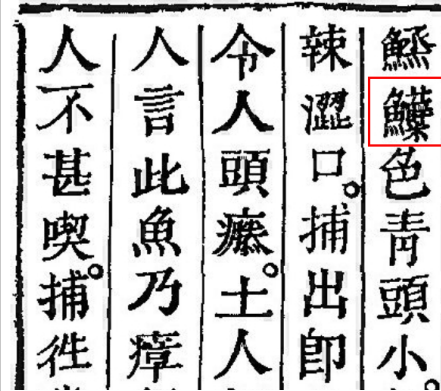 色青頭小
辣澀口。捕出卽
令人頭。土人
人言此魚乃瘴
人不甚喫。捕徃